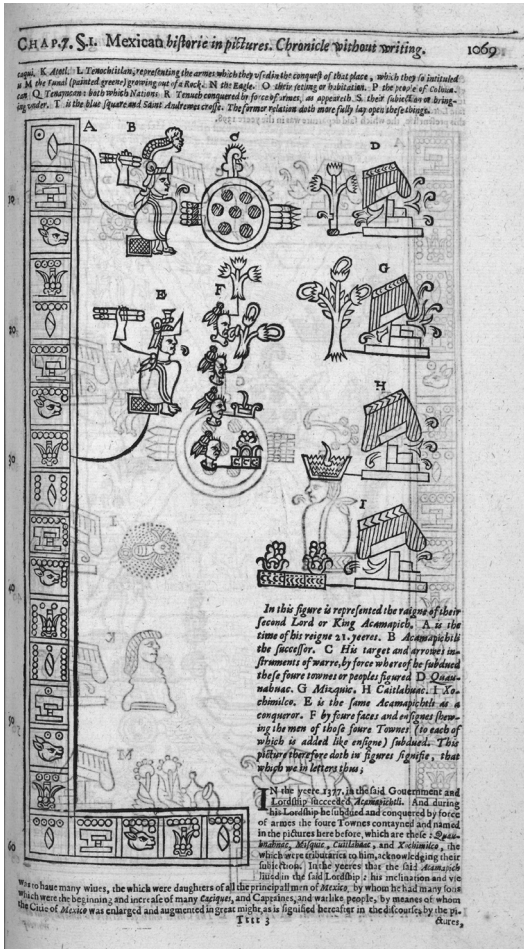 CHAP.7. §.1. Mexican historie in pictures. Chronicle without writing. 1069
taqui, K Atotl. L Tenochtitlan, representing the armes which they used in the conquest of that place, which they so intituled
M the Tunal (painted greene) growing out of a Rock. N the Eagle. O their seting or habitation. P the people of Colhua-
can Q Tenayucan: both which Nations. R Tenuch conquered by force of armes, as appeareth S their subiection or bring-
ing under. T is the blue square and Saint Andrewes crosse. The former relation doth more fully lay open these things.
A B C D
10
E F G
20
H
30
I
40
50
60
In this figure is represented the raigne of their
second Lord or King Acamapich. A is the
time of his reigne 21. yeeres. B Acamapichtli
the successor. C His target and arrowes in-
struments of warre, by force whereof he subdued
these foure townes or peoples figured D Quau-
nahuac. G Mizquic. H Cuitlahuac. I Xo-
chimilco. E is the same Acamapichtli as a
conqueror. F by foure faces and ensignes shew-
ing the men of those foure Townes (to each of
which is added like ensigne) subdued. This
picture therefore doth in figures signifie, that
which we in letters thus;
IN the yeere 1377. in the said Gouernment and
Lordship succeeded, Acamapichtli. And during
his Lordship he subdued and conquered by force
of armes the foure Townes contayned and named
in the pictures here before, which are these: Quau-
unahuac, Misquic, Cuitlahuac, and Xochimilco, the
which were tributaries to him, acknowledging their
subiection. In the yeeres that the said Acamapich
liued in the said Lordship: his inclination and vie
was to haue many wiues, the which were daughters of all the principall men of Mexico, by whom he had many sons
which were the beginning and increase of many Caciques, and Captaines, and warlike people, by meanes of whom
the Citie of Mexico was enlarged and augmented in great might, as is signified hereafter in the discourses, by the pi-
Tttt 3 ctures,